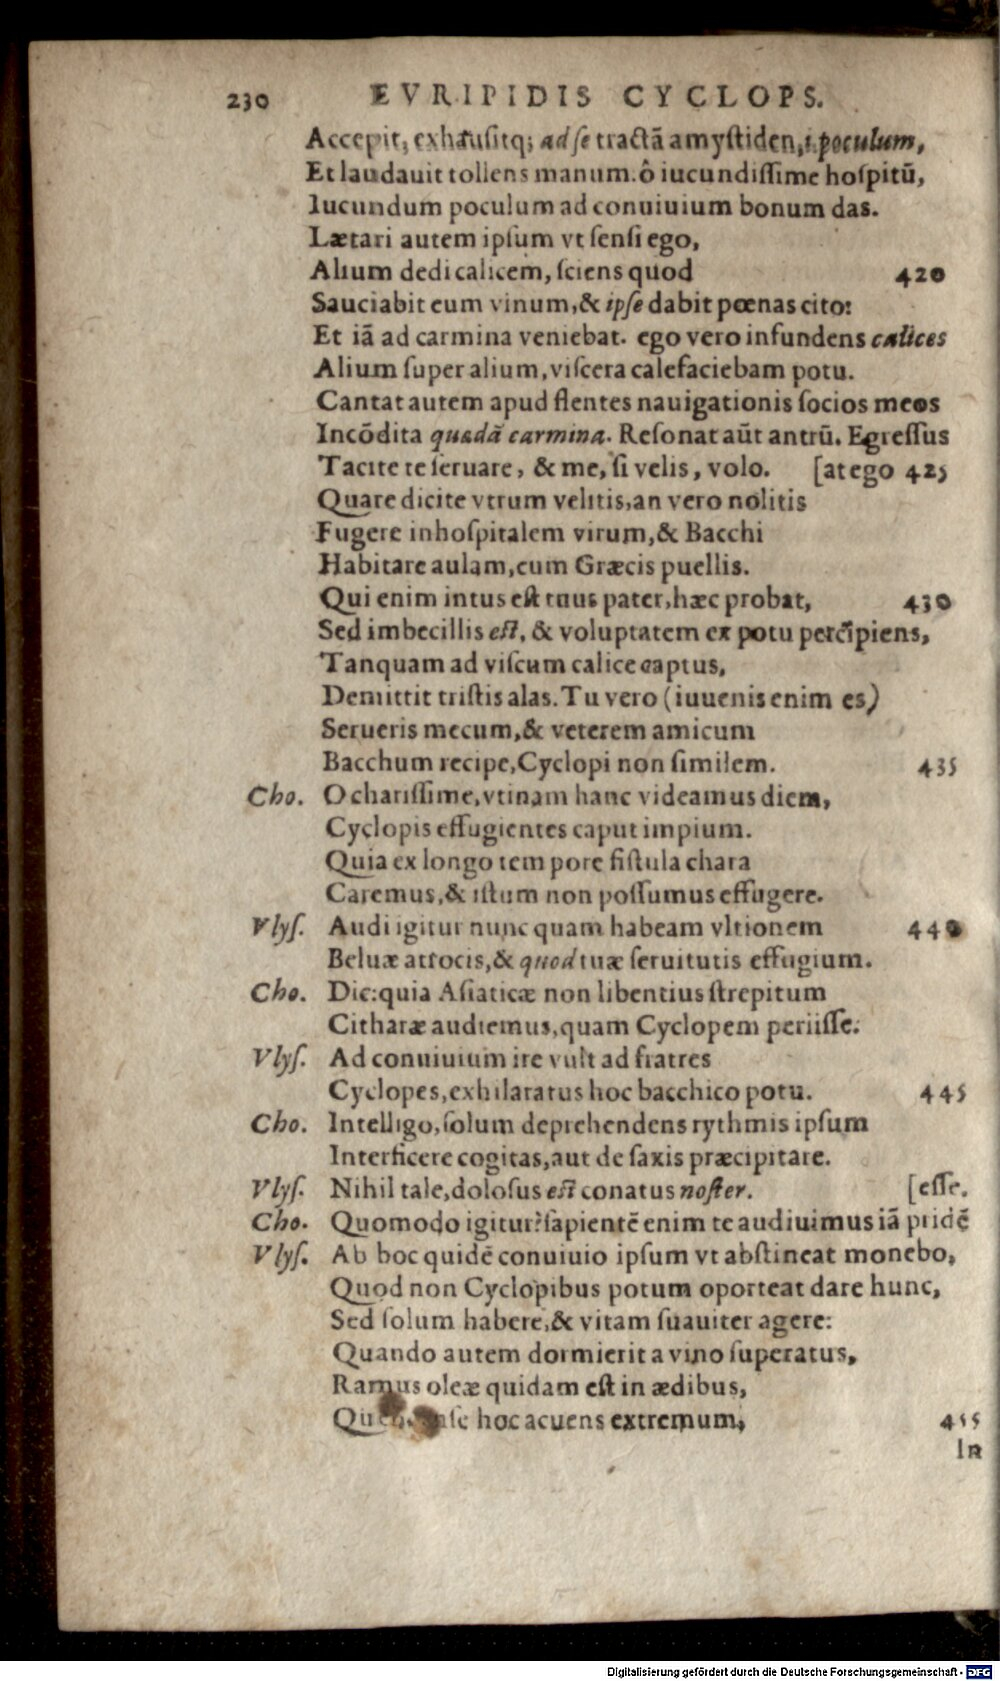 230 EVRIPIDIS CYCLOPS.
Accepit, exhausitq; ad se tractã amystiden, i. poculum,
Et laudauit tollens manum. ô iucundissime hospitũ,
Iucundum poculum ad conuiuium bonum das.
Lætari autem ipsum vt sensi ego,
Alium dedi calicem, sciens quod 420
Sauciabit eum vinum, & ipse dabit pœnas cito:
Et iã ad carmina veniebat. ego vero infundens calices
Alium super alium, viscera calefaciebam potu.
Cantat autem apud flentes nauigationis socios meos
Incõdita quædã carmina. Resonat aũt antrũ. Egressus
Tacite te seruare, & me, si velis, volo. [at ego 425
Quare dicite vtrum velitis, an vero nolitis
Fugere inhospitalem virum, & Bacchi
Habitare aulam, cum Græcis puellis.
Qui enim intus est tuus pater, hæc probat, 430
Sed imbecillis est, & voluptatem ex potu percipiens,
Tanquam ad viscum calice captus,
Demittit tristis alas. Tu vero (iuuenis enim es)
Serueris mecum, & veterem amicum
Bacchum recipe, Cyclopi non similem. 435
Cho. O charissime, vtinam hanc videamus diem,
Cyclopis effugientes caput impium.
Quia ex longo tempore fistula chara
Caremus, & istum non possumus effugere.
Vlys. Audi igitur nunc quam habeam vltionem 440
Beluæ atrocis, & quod tuæ seruitutis effugium.
Cho. Dic: quia Asiaticæ non libentius strepitum
Citharæ audiemus, quam Cyclopem periisse.
Vlys. Ad conuiuium ire vult ad fratres
Cyclopes, exhilaratus hoc bacchico potu. 445
Cho. Intelligo, solum deprehendens rythmis ipsum
Interficere cogitas, aut de saxis præcipitare.
Vlys. Nihil tale, dolosus est conatus noster. [esse.
Cho. Quomodo igitur? sapientẽ enim te audiuimus iã pridẽ
Vlys. Ab hoc quidẽ conuiuio ipsum vt abstineat monebo,
Quod non Cyclopibus potum oporteat dare hunc,
Sed solum habere, & vitam suauiter agere:
Quando autem dormierit a vino superatus,
Ramus oleæ quidam est in ædibus,
hoc acuens extremum, 455
In
Digitalisierung gefördert durch die Deutsche Forschungsgemeinschaft - DFG